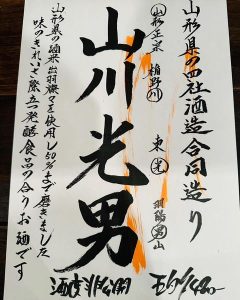 山形県の四社酒造合同造り
山形正宗 楯野川
東光 羽陽男山
山川光男
山形県の酒米出羽燦々を使用し50%まで磨きました
味のきれいさ際立つ発酵食品の合うお酒です